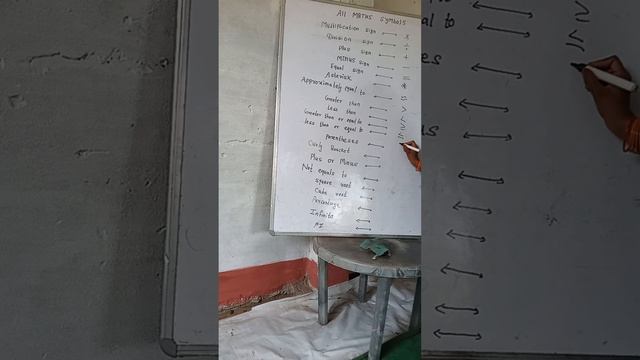 All MATHS Symbols
Multification sign ⟷ ×
Division sign ⟷ ÷
Plus sign ⟷ +
MINUS sign ⟷ −
Equal sign ⟷ =
Asterisk ⟷ *
Approximately equal to ⟷ ≈
Greater than ⟷ >
Less than ⟷ <
Greater than or equal to ⟷ ≥
less than or equal to ⟷ ≤
parentheses ⟷
Curly Bracket ⟷
Plus or Minus ⟷
Not equals to ⟷
square root ⟷
Cube root ⟷
Percentage ⟷
Infinite ⟷
PI ⟷